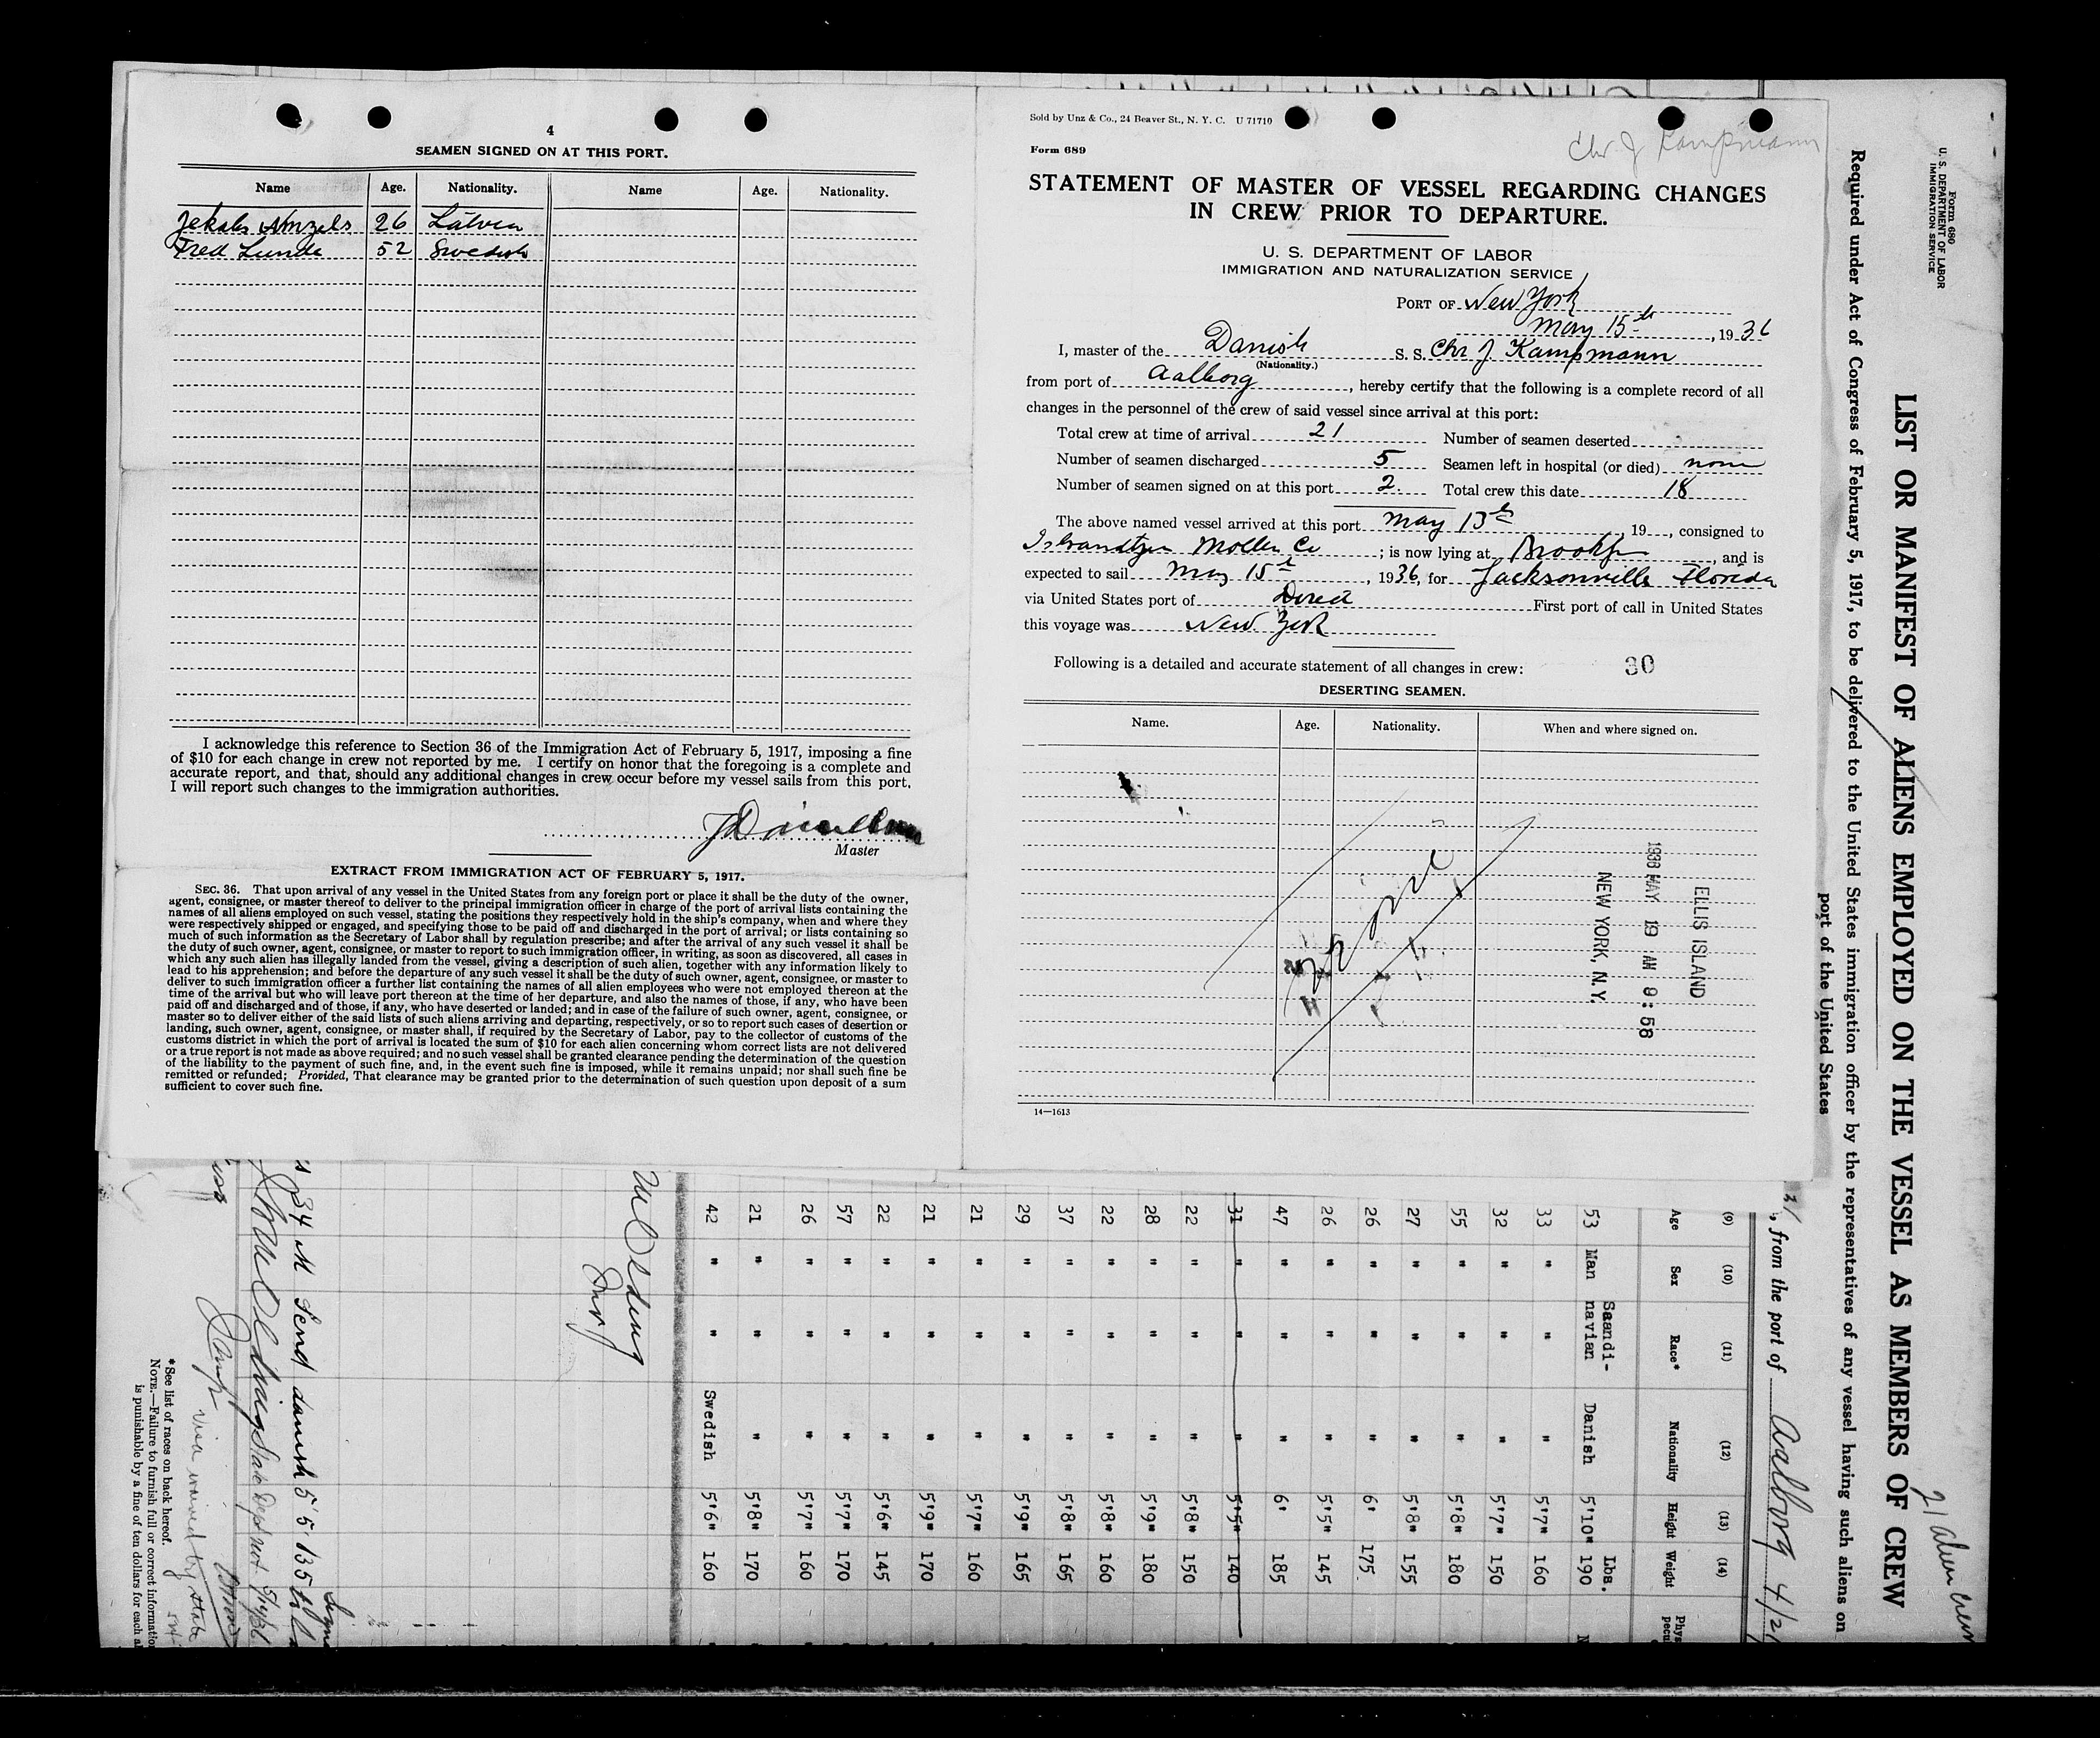 4
SEAMEN SIGNED ON AT THIS PORT.
Name Age. Nationality. Name Age. Nationality.
Jekabs 26 Latvia
Fred Lunde 52 Swedish
I acknowledge this reference to Section 36 of the Immigration Act of February 5, 1917, imposing a fine
of $10 for each change in crew not reported by me. I certify on honor that the foregoing is a complete and
accurate report, and that, should any additional changes in crew occur before my vessel sails from this port,
I will report such changes to the immigration authorities.
Master
EXTRACT FROM IMMIGRATION ACT OF FEBRUARY 5, 1917.
SEC. 36. That upon arrival of any vessel in the United States from any foreign port or place it shall be the duty of the owner,
agent, consignee, or master thereof to deliver to the principal immigration officer in charge of the port of arrival lists containing the
names of all aliens employed on such vessel, stating the positions they respectively hold in the ship's company, when and where they
were respectively shipped or engaged, and specifying those to be paid off and discharged in the port of arrival; or lists containing so
much of such information as the Secretary of Labor shall by regulation prescribe; and after the arrival of any such vessel it shall be
the duty of such owner, agent, consignee, or master to report to such immigration officer, in writing, as soon as discovered, all cases in
which any such alien has illegally landed from the vessel, giving a description of such alien, together with any information likely to
lead to his apprehension; and before the departure of any such vessel it shall be the duty of such owner, agent, consignee, or master to
deliver to such immigration officer a further list containing the names of all alien employees who were not employed thereon at the
time of the arrival but who will leave port thereon at the time of her departure, and also the names of those, if any, who have been
paid off and discharged and of those, if any, who have deserted or landed; and in case of the failure of such owner, agent, consignee, or
master so to deliver either of the said lists of such aliens arriving and departing, respectively, or so to report such cases of desertion or
landing, such owner, agent, consignee, or master shall, if required by the Secretary of Labor, pay to the collector of customs of the
customs district in which the port of arrival is located the sum of $10 for each alien concerning whom correct lists are not delivered
or a true report is not made as above required; and no such vessel shall be granted clearance pending the determination of the question
of the liability to the payment of such fine, and, in the event such fine is imposed, while it remains unpaid; nor shall such fine be
remitted or refunded; Provided, That clearance may be granted prior to the determination of such question upon deposit of a sum
sufficient to cover such fine.
Sold by Unz & Co., 24 Beaver St., N. Y. C. U 71710
Form 689
Chr J Kampmann
STATEMENT OF MASTER OF VESSEL REGARDING CHANGES
IN CREW PRIOR TO DEPARTURE.
U. S. DEPARTMENT OF LABOR
IMMIGRATION AND NATURALIZATION SERVICE
PORT OF New York
May 15th, 1936
I, master of the Danish S. S. Chr J Kampmann
(Nationality.)
from port of Aalborg, hereby certify that the following is a complete record of all
changes in the personnel of the crew of said vessel since arrival at this port:
Total crew at time of arrival 21 Number of seamen deserted
Number of seamen discharged 5 Seamen left in hospital (or died) none
Number of seamen signed on at this port 2. Total crew this date 18
The above named vessel arrived at this port May 13th, 19, consigned to
Isbrandtsen Moller Co; is now lying at Brooklyn, and is
expected to sail May 15th, 1936, for Jacksonville Florida
via United States port of Direct First port of call in United States
this voyage was New York
Following is a detailed and accurate statement of all changes in crew: 30
DESERTING SEAMEN.
Name. Age. Nationality. When and where signed on.
None
ELLIS ISLAND
1936 MAY 19 AM 9:58
NEW YORK, N.Y.
14—1613
Form 680
U. S. DEPARTMENT OF LABOR
IMMIGRATION SERVICE
21 alien crew
LIST OR MANIFEST OF ALIENS EMPLOYED ON THE VESSEL AS MEMBERS OF CREW
Required under Act of Congress of February 5, 1917, to be delivered to the United States immigration officer by the representatives of any vessel having such aliens on
port of the United States
, from the port of Aalborg 4/21
(9) (10) (11) (12) (13) (14)
Age Sex Race* Nationality Height Weight
Lbs.
53 Man Saandi-navian Danish 5'10" 190
33 " " " 5'7" 160
32 " " " 5'7" 150
55 " " " 5'8" 180
27 " " " 5'8" 155
26 " " " 6' 175
26 " " " 5'5" 145
47 " " " 6' 185
31 " " " 5'5" 140
22 " " " 5'8" 150
28 " " " 5'9" 180
22 " " " 5'8" 160
37 " " " 5'8" 165
29 " " " 5'9" 165
21 " " " 5'7" 160
21 " " " 5'9" 170
22 " " " 5'6" 145
57 " " " 5'7" 170
26 " " " 5'7" 160
21 " " " 5'8" 170
42 " " Swedish 5'6" 160
34 M Scnd danish 5'5 135
visa waived by State
*See list of races on back hereof.
NOTE.—Failure to furnish full or correct informatio
is punishable by a fine of ten dollars for each al